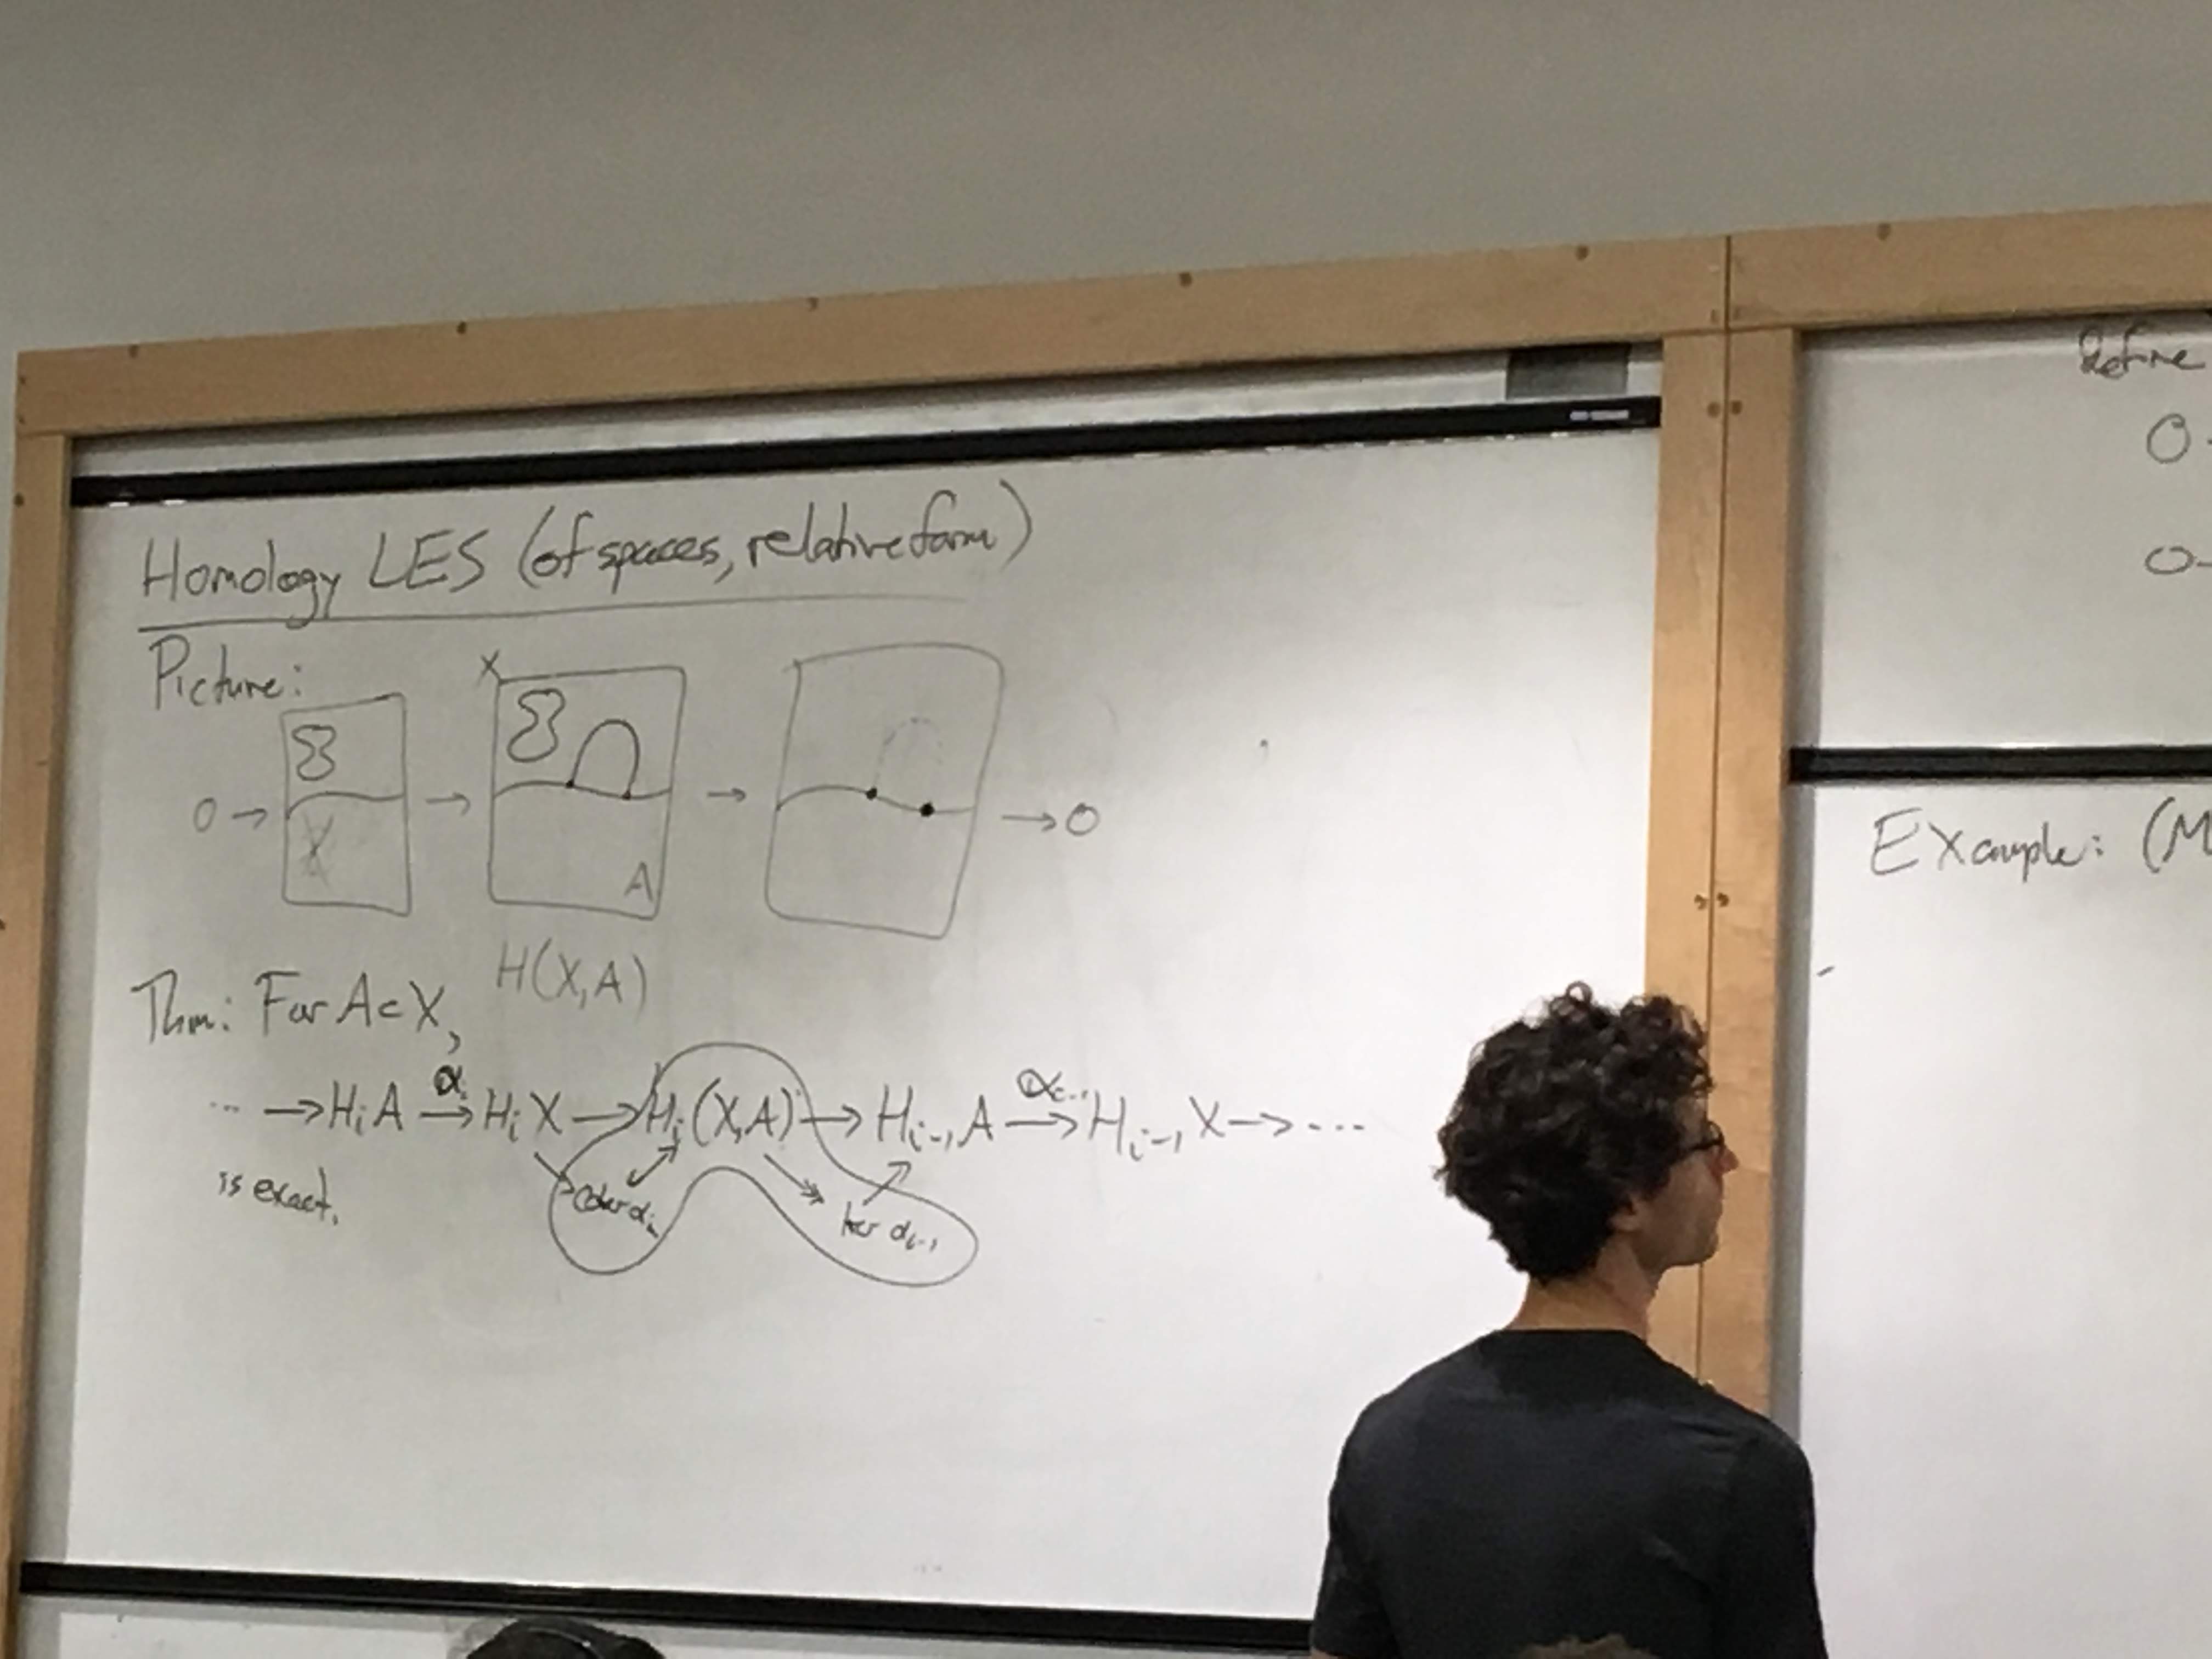 Homology LES (of spaces, relative form)
Picture:
X
0 → → → → 0
A
H(X,A)
Thm: For A ⊂ X,
... → HᵢA →^αᵢ HᵢX → Hᵢ(X,A) → Hᵢ₋₁A →^αᵢ₋₁ Hᵢ₋₁X → ...
is exact.
coker αᵢ
ker αᵢ₋₁
Define
0
0
Example: (M